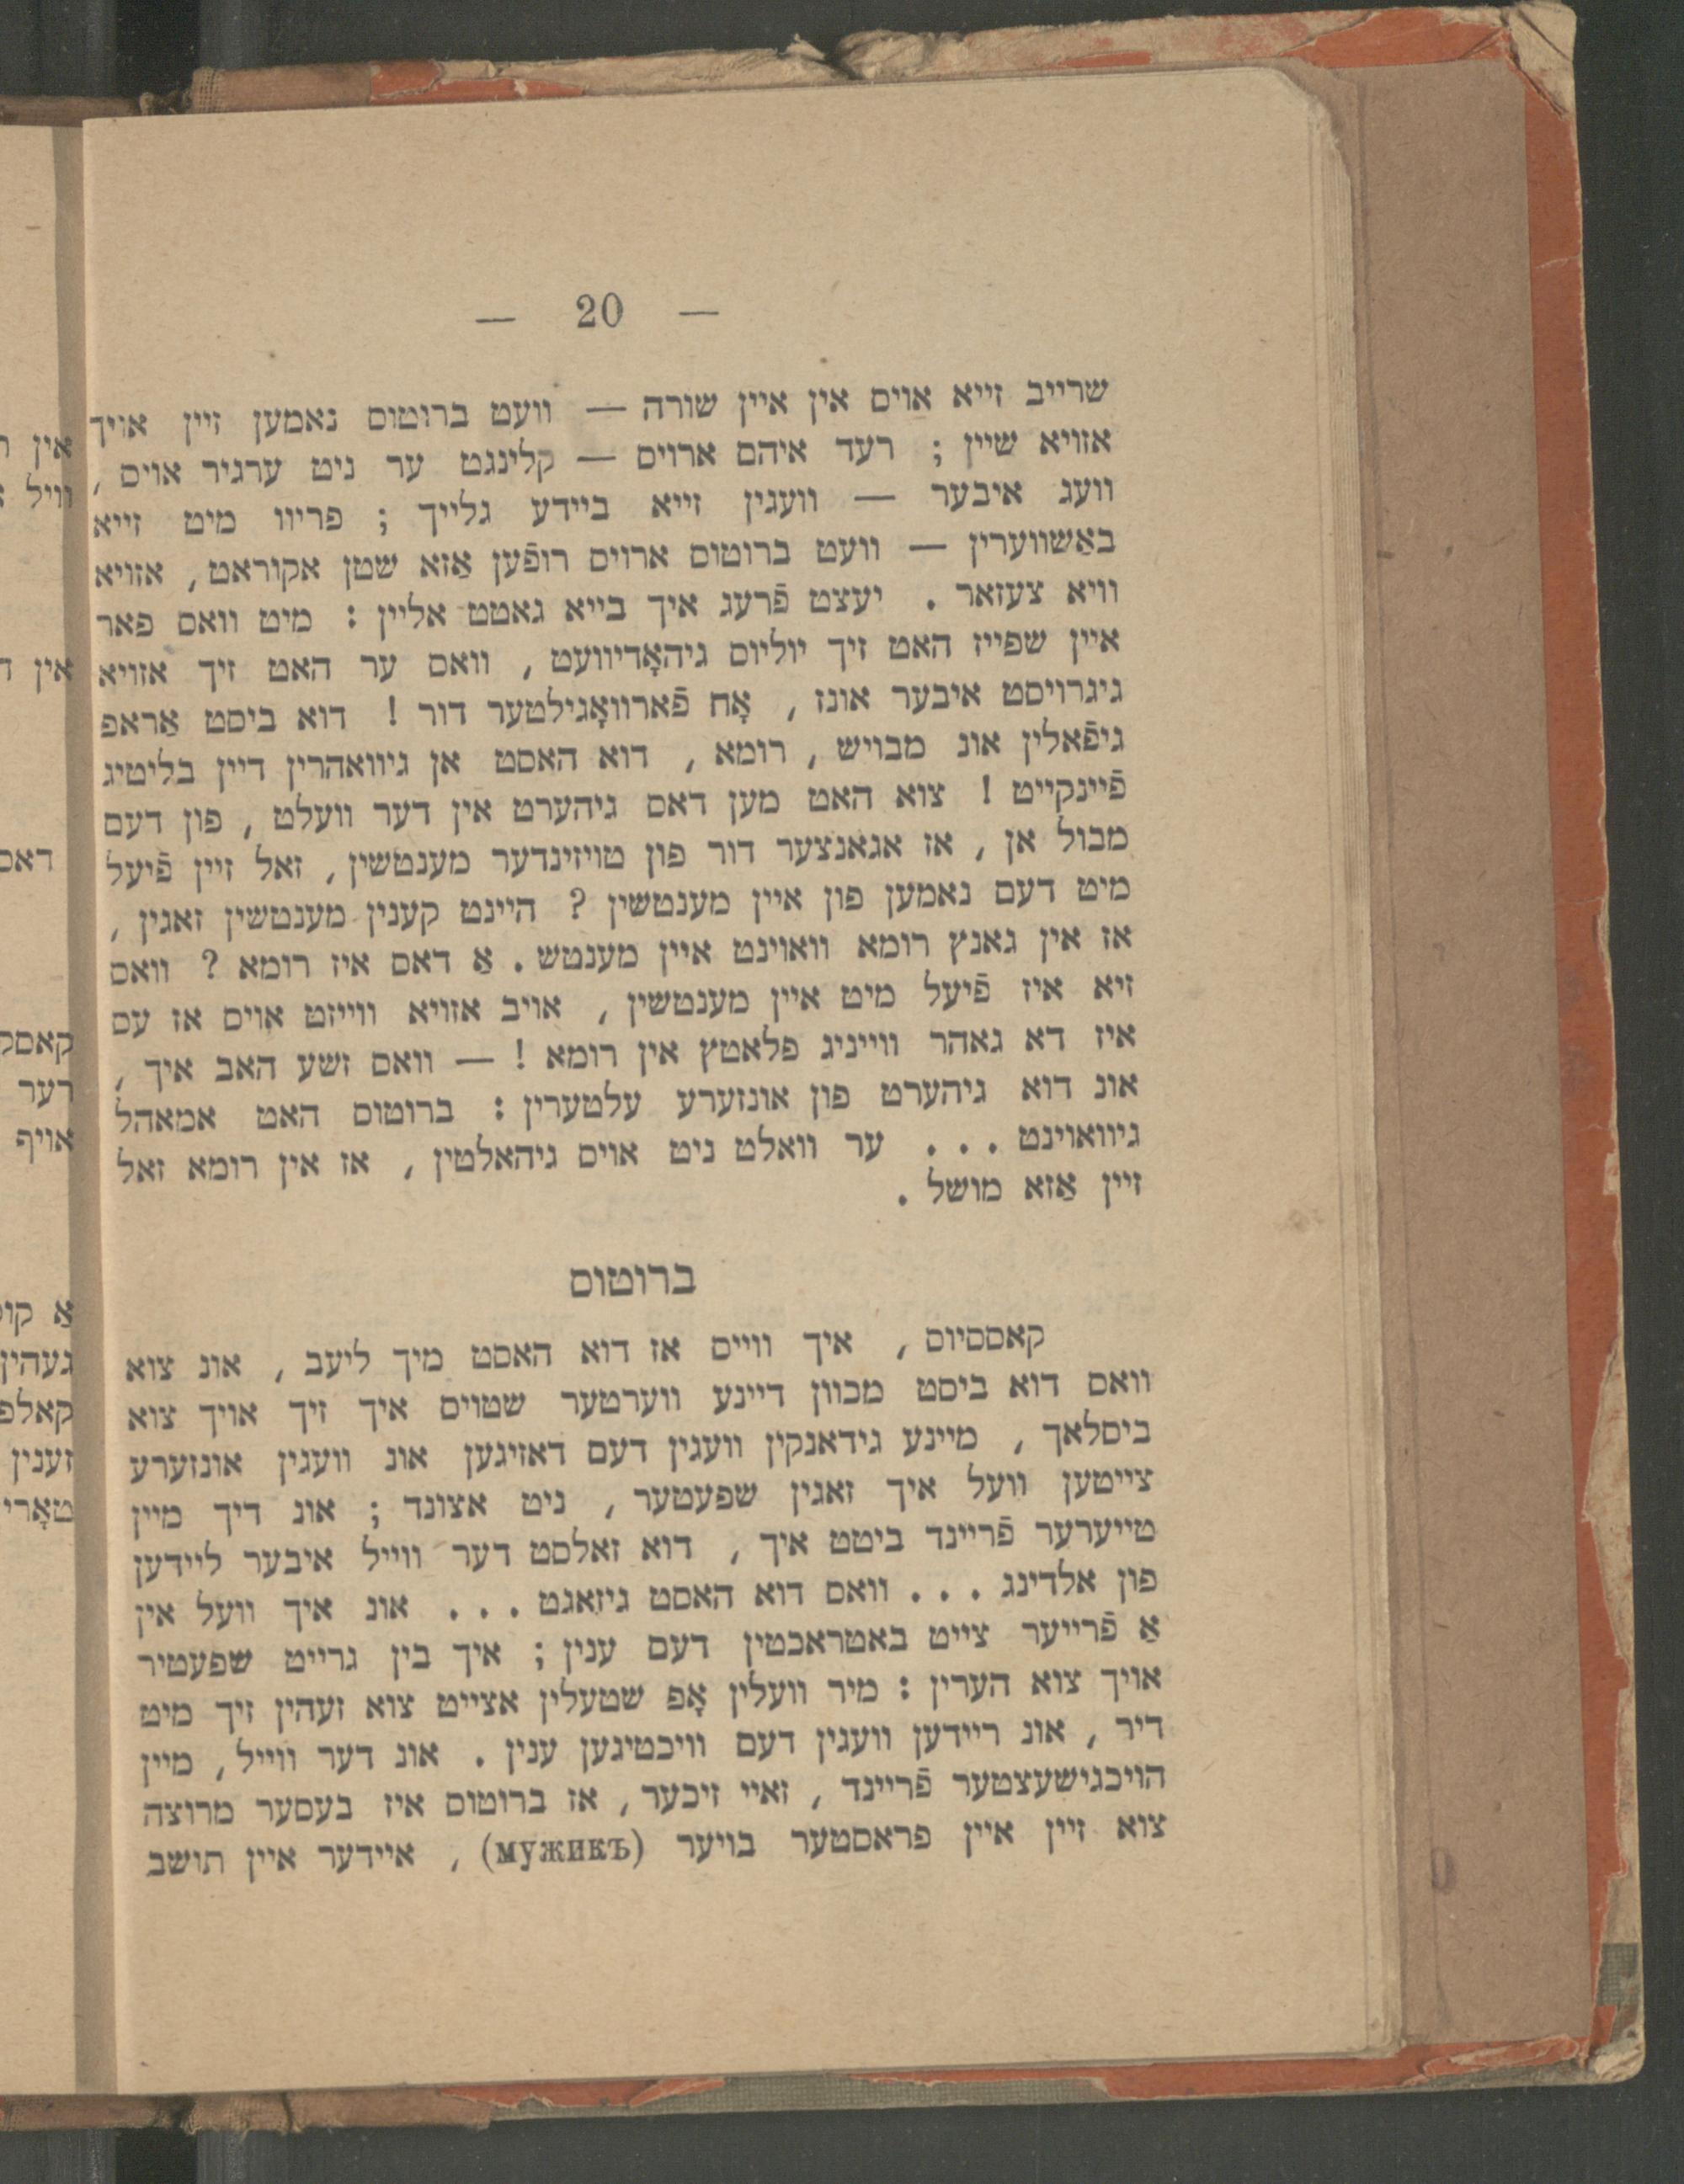 — 20 —
שרייב זייא אויס אין איין שורה — וועט ברוטוס נאמען זיין אויך
אזויא שיין ; רעד איהם ארויס — קלינגט ער ניט ערגיר אויס ,
וועג איבער — וועגין זייא ביידע גלייך ; פריוו מיט זייא
באַשווערין — וועט ברוטוס ארויס רופֿען אַזא שטן אקוראט, אזויא
וויא צעזאר . יעצט פֿרעג איך בייא גאטט אליין : מיט וואס פאר
איין שפייז האט זיך יוליוס גיהאָדיוועט , וואס ער האט זיך אזויא
גיגרויסט איבער אונז , אָח פֿארוואָגילטער דור ! דוא ביסט אַראפ
גיפֿאלין אונ מבויש , רומא , דוא האסט אן גיוואהרין דיין בליטיג
פֿיינקייט ! צוא האט מען דאס גיהערט אין דער וועלט , פון דעם
מבול אן , אז אגאנצער דור פון טויזינדער מענטשין, זאל זיין פֿיעל
מיט דעם נאמען פון איין מענטשין ? היינט קענין מענטשין זאגין ,
אז אין גאנץ רומא וואוינט איין מענטש . אַ דאס איז רומא ? וואס
זיא איז פֿיעל מיט איין מענטשין , אויב אזויא ווייזט אויס אז עס
איז דא גאהר וויניג פלאטץ אין רומא ! — וואס זשע האב איך ,
אונ דוא גיהערט פון אונזערע עלטערין : ברוטוס האט אמאהל
גיוואוינט . . . ער וואלט ניט אויס גיהאלטין , אז אין רומא זאל
זיין אַזא מושל .
ברוטוס
קאססיוס , איך ווייס אז דוא האסט מיך ליעב , אונ צוא
וואס דוא ביסט מכוון דיינע ווערטער שטויס איך זיך אויך צוא
ביסלאך , מיינע גידאנקין וועגין דעם דאזיגען אונ וועגין אונזערע
צייטען וועל איך זאגין שפעטער , ניט אצונד ; אונ דיך מיין
טייערער פֿריינד ביטט איך , דוא זאלסט דער ווייל איבער ליידען
פון אלדינג . . . וואס דוא האסט גיזאגט . . . אונ איך וועל אין
אַ פֿרייער צייט באטראכטין דעם ענין ; איך בין גרייט שפעטיר
אויך צוא הערין : מיר וועלין אָפ שטעלין אצייט צוא זעהין זיך מיט
דיר , אונ ריידען וועגין דעם וויכטיגען ענין . אונ דער ווייל , מיין
הויכגישעצטער פֿריינד , זאיי זיכער , אז ברוטוס איז בעסער מרוצה
צוא זיין איין פראסטער בויער (мужикъ) , איידער איין תושב